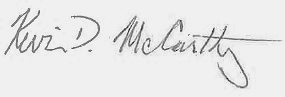 Kevin D. McCarthy